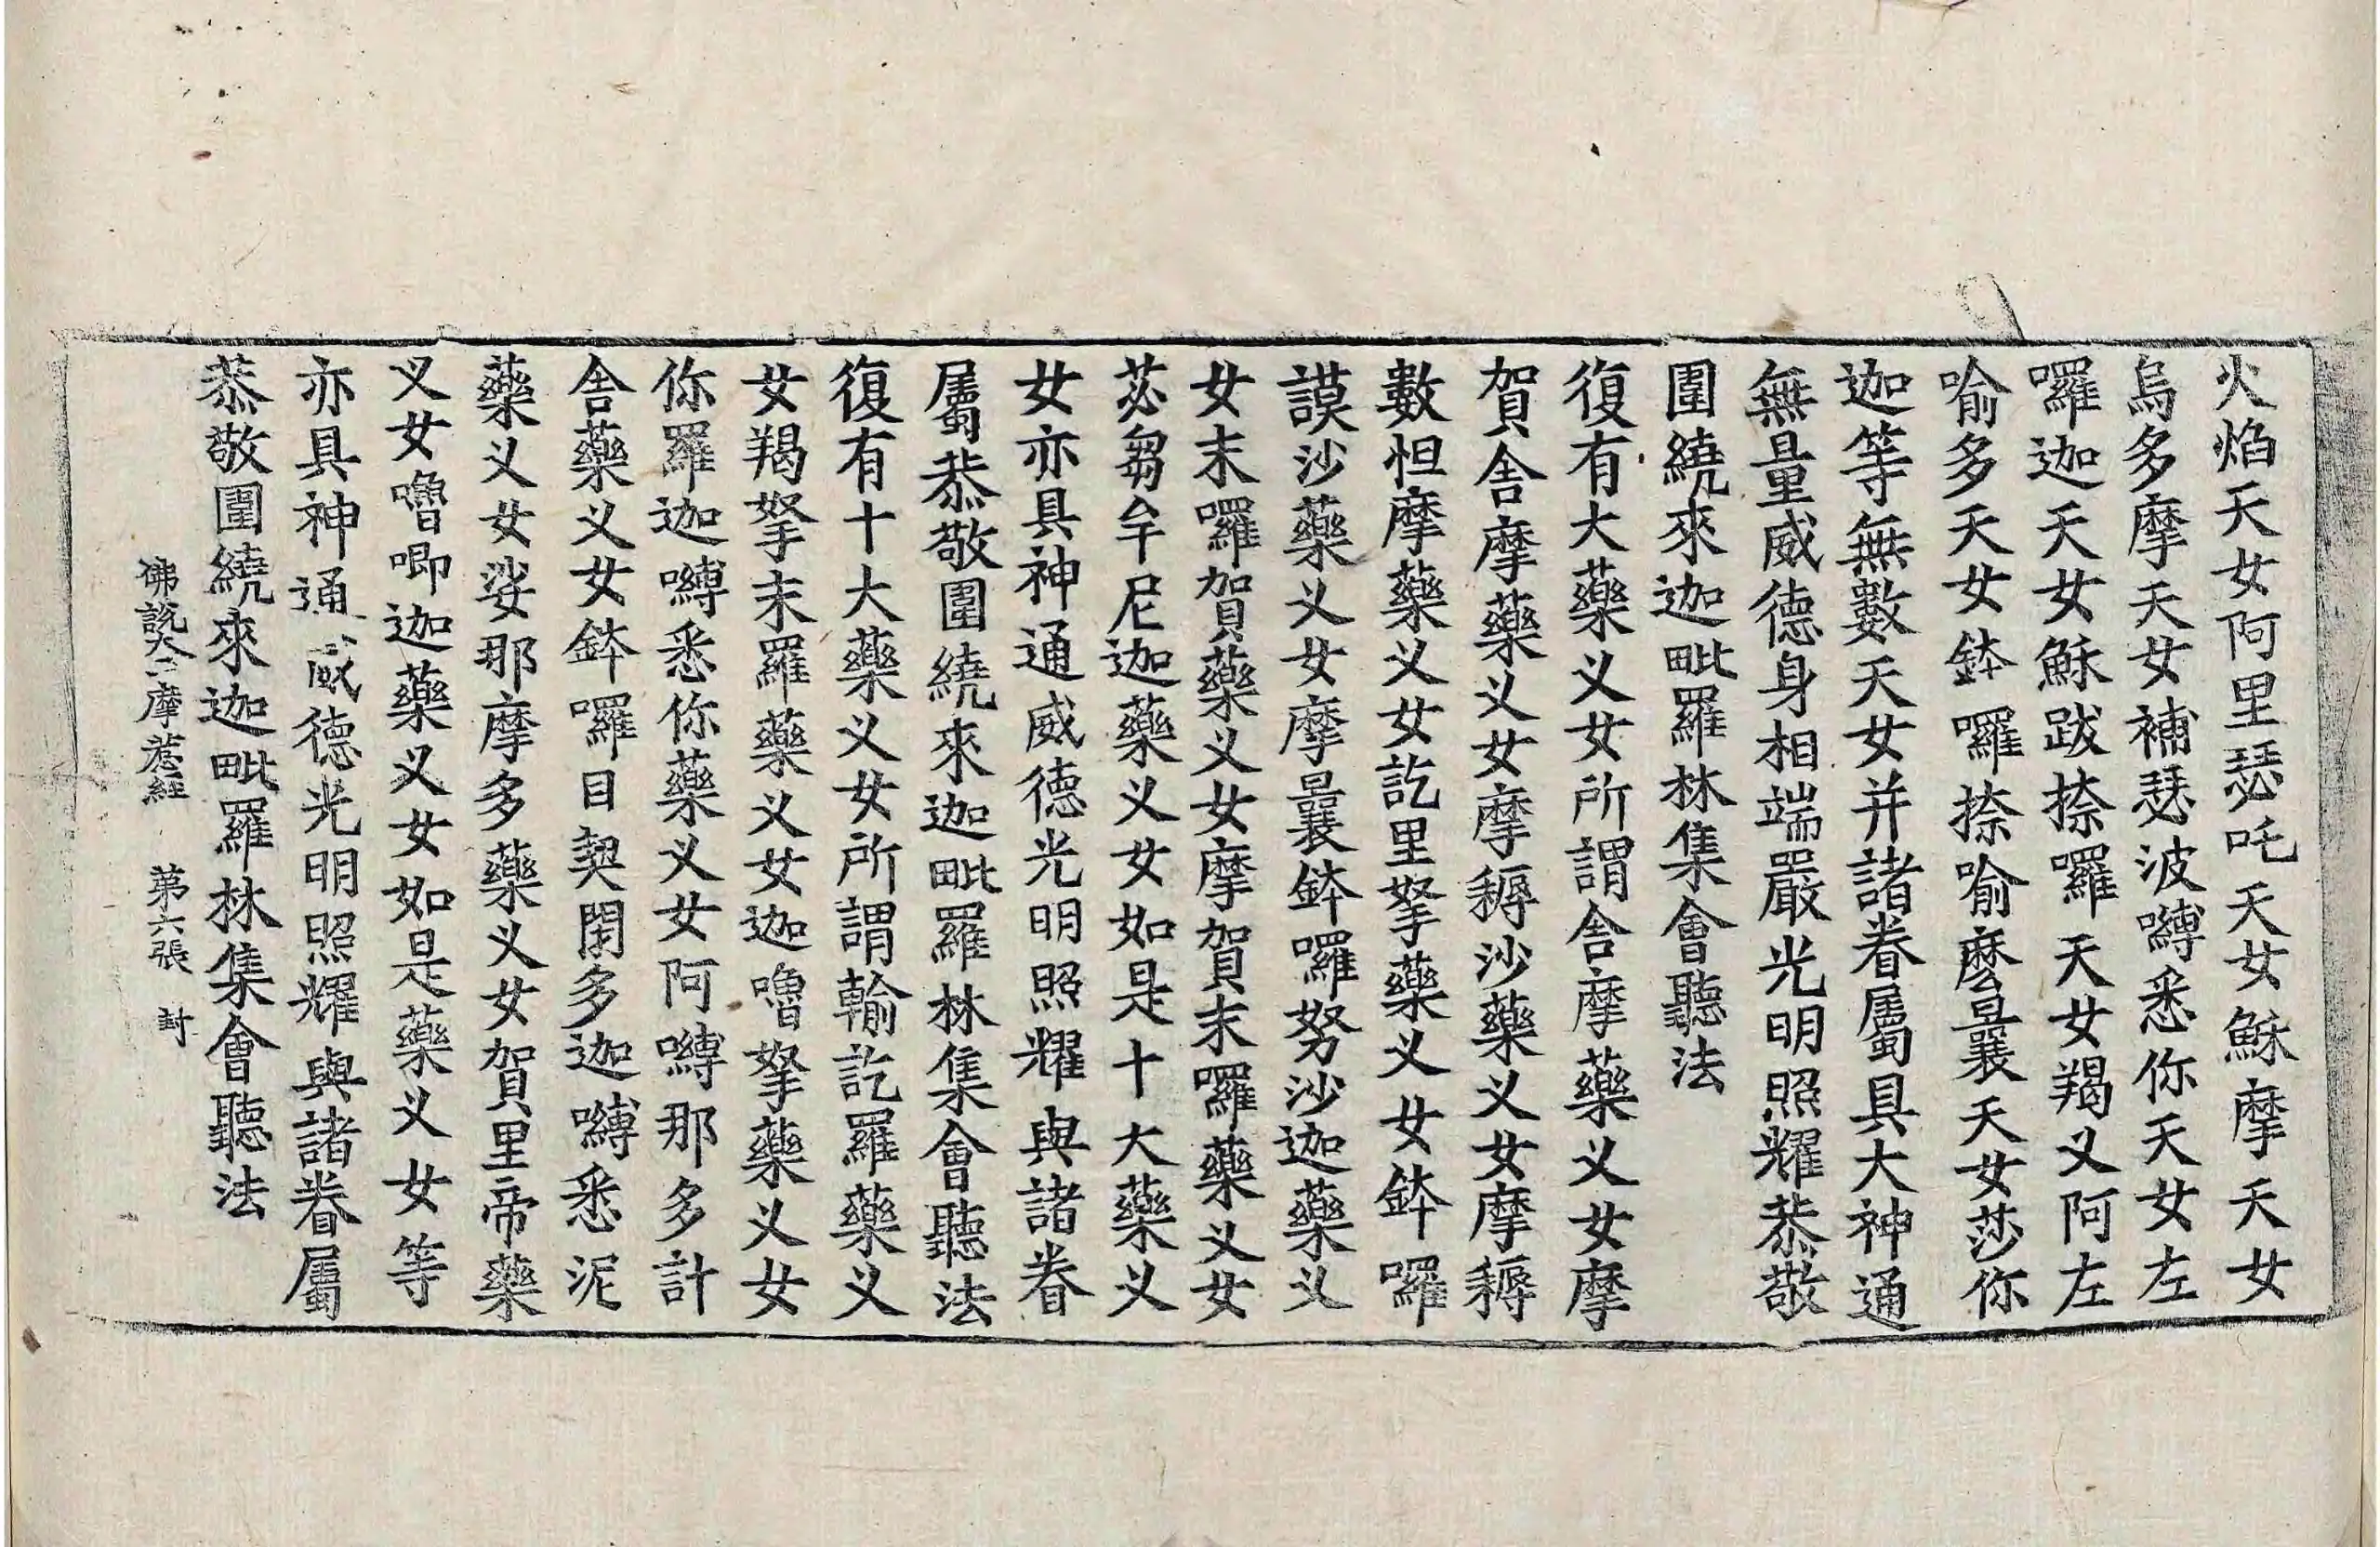 火焰天女阿里瑟吒天女穌摩天女
烏多摩天女補瑟波嚩悉你天女左
囉迦天女穌跋捺囉天女羯义阿左
喻多天女鉢囉捺喻麽曩天女莎你
迦等無數天女并諸眷屬具大神通
無量威德身相端嚴光明照耀恭敬
圍繞來迦毗羅林集會聽法
復有大藥义女所謂舎摩藥义女摩
賀舎摩藥义女摩褥沙藥义女摩褥
數怛摩藥义女訖里拏藥义女鉢囉
謨沙藥义女摩曩鉢囉努沙迦藥义
女末囉賀藥义女摩賀末囉藥义女
苾芻牟尼迦藥义女如是十大藥义
女亦具神通威德光明照耀與諸眷
屬恭敬圍繞來迦毗羅林集會聽法
復有十大藥义女所謂輸訖羅藥义
女羯拏末羅藥义女迦嚕拏藥义女
你羅迦嚩悉你藥义女阿嚩那多計
舎藥义女鉢囉目契閉多迦嚩悉泥
藥义女娑那摩多藥义女賀里帝藥
义女嚕唧迦藥义女如是藥义女等
亦具神通威德光明照耀與諸眷屬
恭敬圍繞來迦毗羅林集會聽法
佛說大三摩惹經 第六張 封